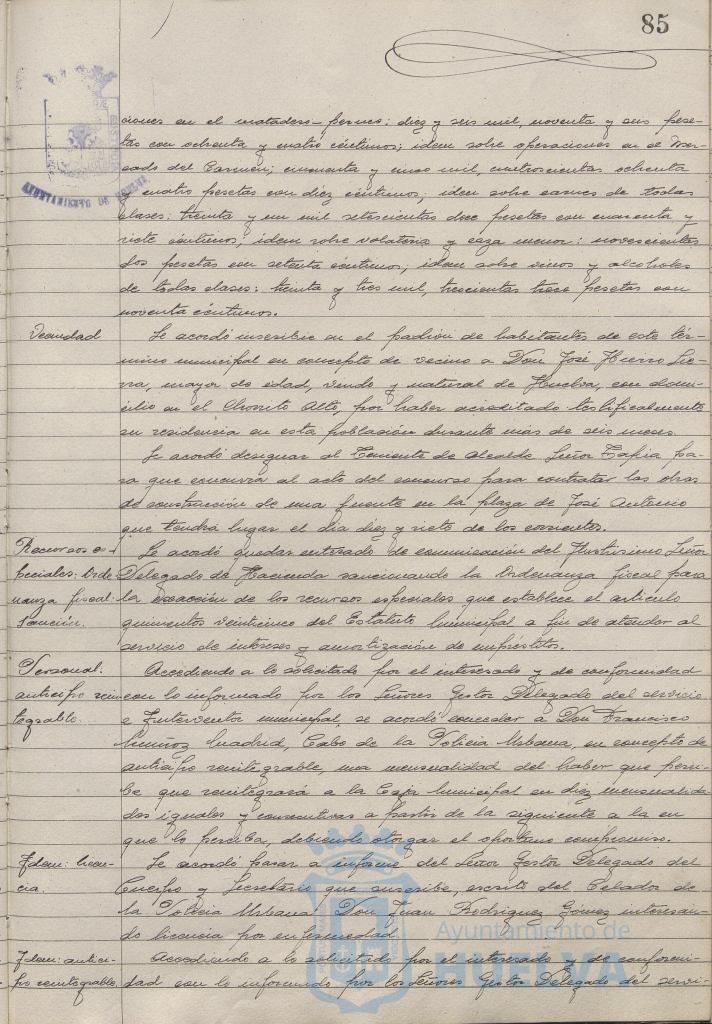 85
AYUNTAMIENTO DE HUELVA
ciones en el matadero-permco: diez y seis mil, noventa y seis pese-
tas con ochenta y cuatro céntimos; idem sobre operaciones en el Mer-
cado del Carmen; cincuenta y cinco mil, cuatrocientas ochenta
y cuatro pesetas con diez céntimos; idem sobre carnes de todas
clases: treinta y un mil setecientas doce pesetas con cuarenta y
siete céntimos; idem sobre volatería y caza menor: novecientas
dos pesetas con setenta céntimos; idem sobre vinos y alcoholes
de todas clases: treinta y tres mil, trescientas trece pesetas con
noventa céntimos.
Vecindad
Se acordó inscribir en el padrón de habitantes de este tér-
mino municipal en concepto de vecino a Don José Hierro Sie-
rra, mayor de edad, viudo y natural de Huelva, con domi-
cilio en el Chorrito Alto, por haber acreditado testificalmente
su residencia en esta población durante más de seis meses.
Se acordó designar al Teniente de Alcalde Señor Tapia pa-
ra que concurra al acto del concurso para contratar las obras
de construcción de una fuente en la plaza de José Antonio
que tendrá lugar el día diez y siete de los corrientes.
Recursos es-
peciales: Orde
nanza fiscal:
Sanción.
Se acordó quedar enterado de comunicación del Ilustrísimo Señor
Delegado de Hacienda sancionando la Ordenanza fiscal para
la exacción de los recursos especiales que establece el artículo
quinientos veinticinco del Estatuto Municipal a fin de atender al
servicio de intereses y amortización de empréstitos.
Personal:
anticipo rein
tegrable.
Accediendo a lo solicitado por el interesado y de conformidad
con lo informado por los Señores Gestor Delegado del servicio
e Interventor municipal, se acordó conceder a Don Francisco
Muñoz Madrid, Cabo de la Policía Urbana, en concepto de
anticipo reintegrable, una mensualidad del haber que perci-
be que reintegrará a la Caja municipal en diez mensualida-
des iguales y consecutivas a partir de la siguiente a la en
que lo perciba, debiendo otorgar el oportuno compromiso.
Idem: licen-
cia.
Se acordó pasar a informe del Señor Gestor Delegado del
Cuerpo y Secretario que suscribe, escrito del Celador de
la Policía Urbana Don Juan Rodriguez Gómez interesan-
do licencia por enfermedad.
Idem: antici-
po reintegrable
Accediendo a lo solicitado por el interesado y de conformi-
dad con lo informado por los Señores Gestor Delegado del servi-
Ayuntamiento de
HUELVA